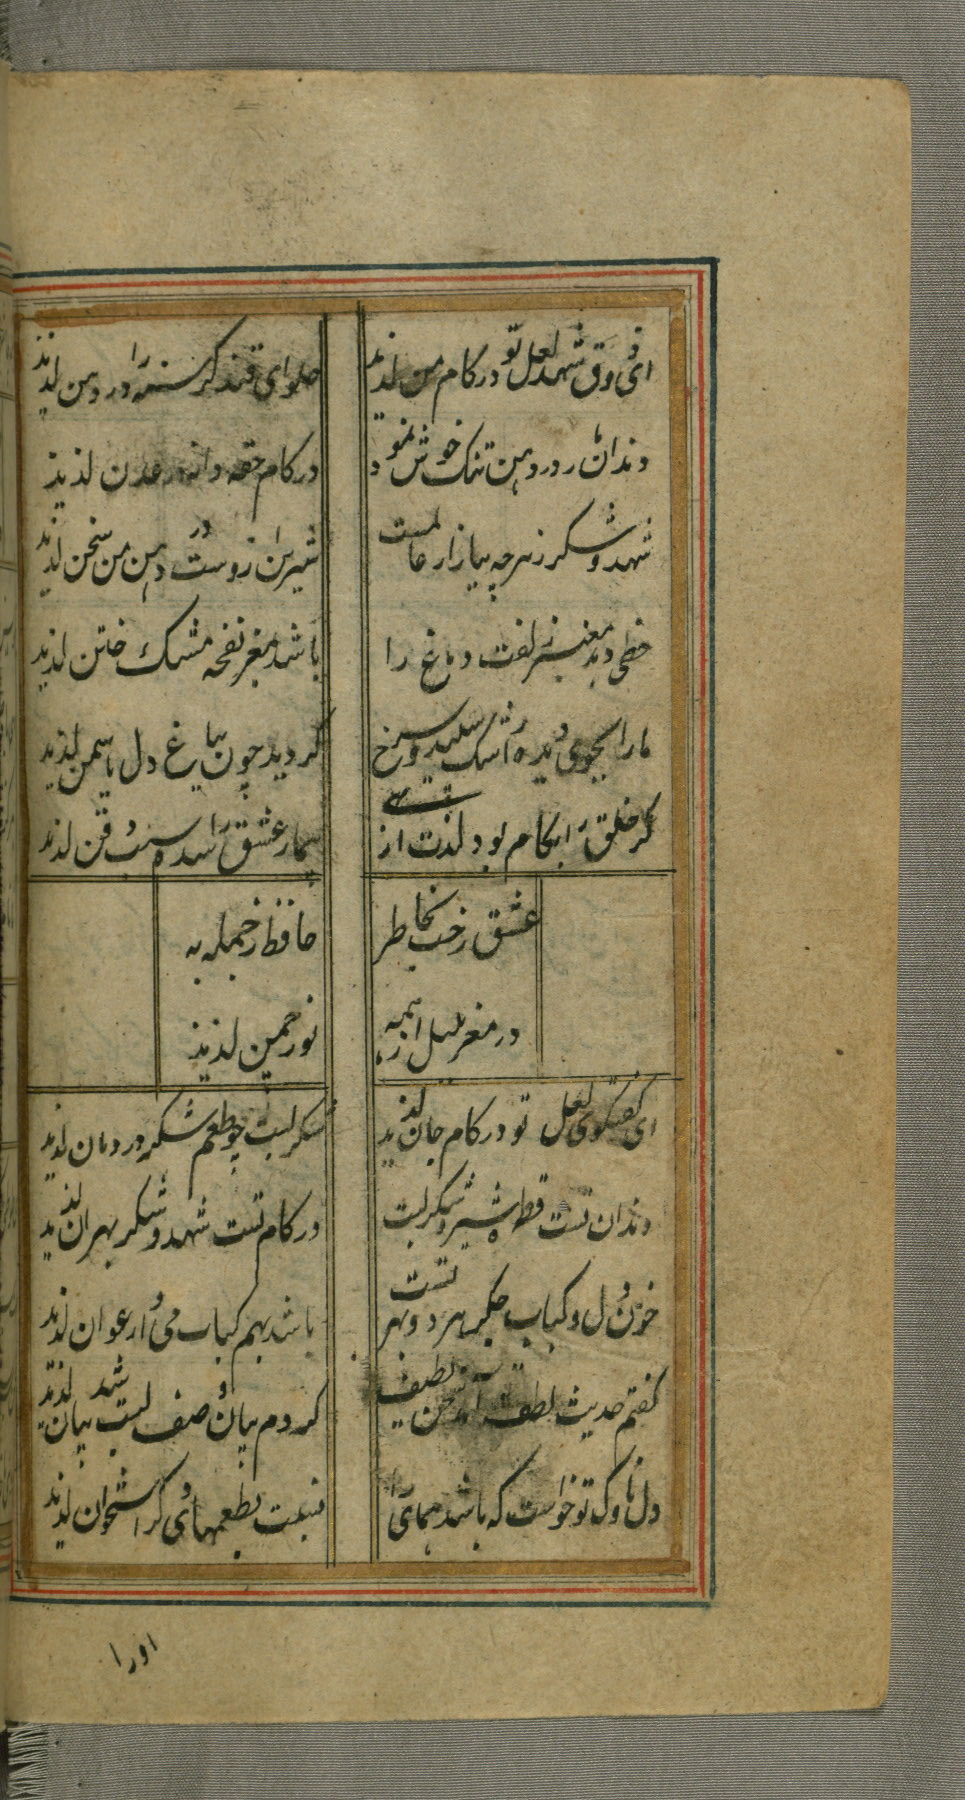 ای ذوق شهد لعل تو در کام من لذیذ
حلوای قند گرسنه را در دهن لذیذ
دندان در دهن تنک خوش نمود
در کام حقه دانه در عدن لذیذ
شهد و شکر ز هر چه ببازار عالمست
شیرین تر از وست در دهن من سخن لذیذ
خطی دمد معنبر زلفت دماغ را
باشد بمغز نفحه مشک ختن لذیذ
ما را بجوی دیده اشک سفید و سرخ
گردید چون بباغ دل یاسمن لذیذ
گر خلق را بکام بود لذت از
بیمار عشق را شده سیب ذقن لذیذ
عشق رخت بخاطر
حافظ ز جمله به
در مغز بلبل از همه
نور چمن لذیذ
ای گفتگوی لعل تو در کام جان لذیذ
شکر لبت چو طعم شکر در دهان لذیذ
دندان تست قطره شیر و شکر لبت
در کام تست شهد و شکر بهر آن لذیذ
خون دل و کباب جگر هر دو بهر تست
باشد بهم کباب و می ارغوان لذیذ
گفتم حدیث لطف سخن لطیف
کردم بیان وصف لبت شد بیان لذیذ
دل ناوک تو خواست که باشد همای را
طعمهای دگر استخوان لذیذ
اورا